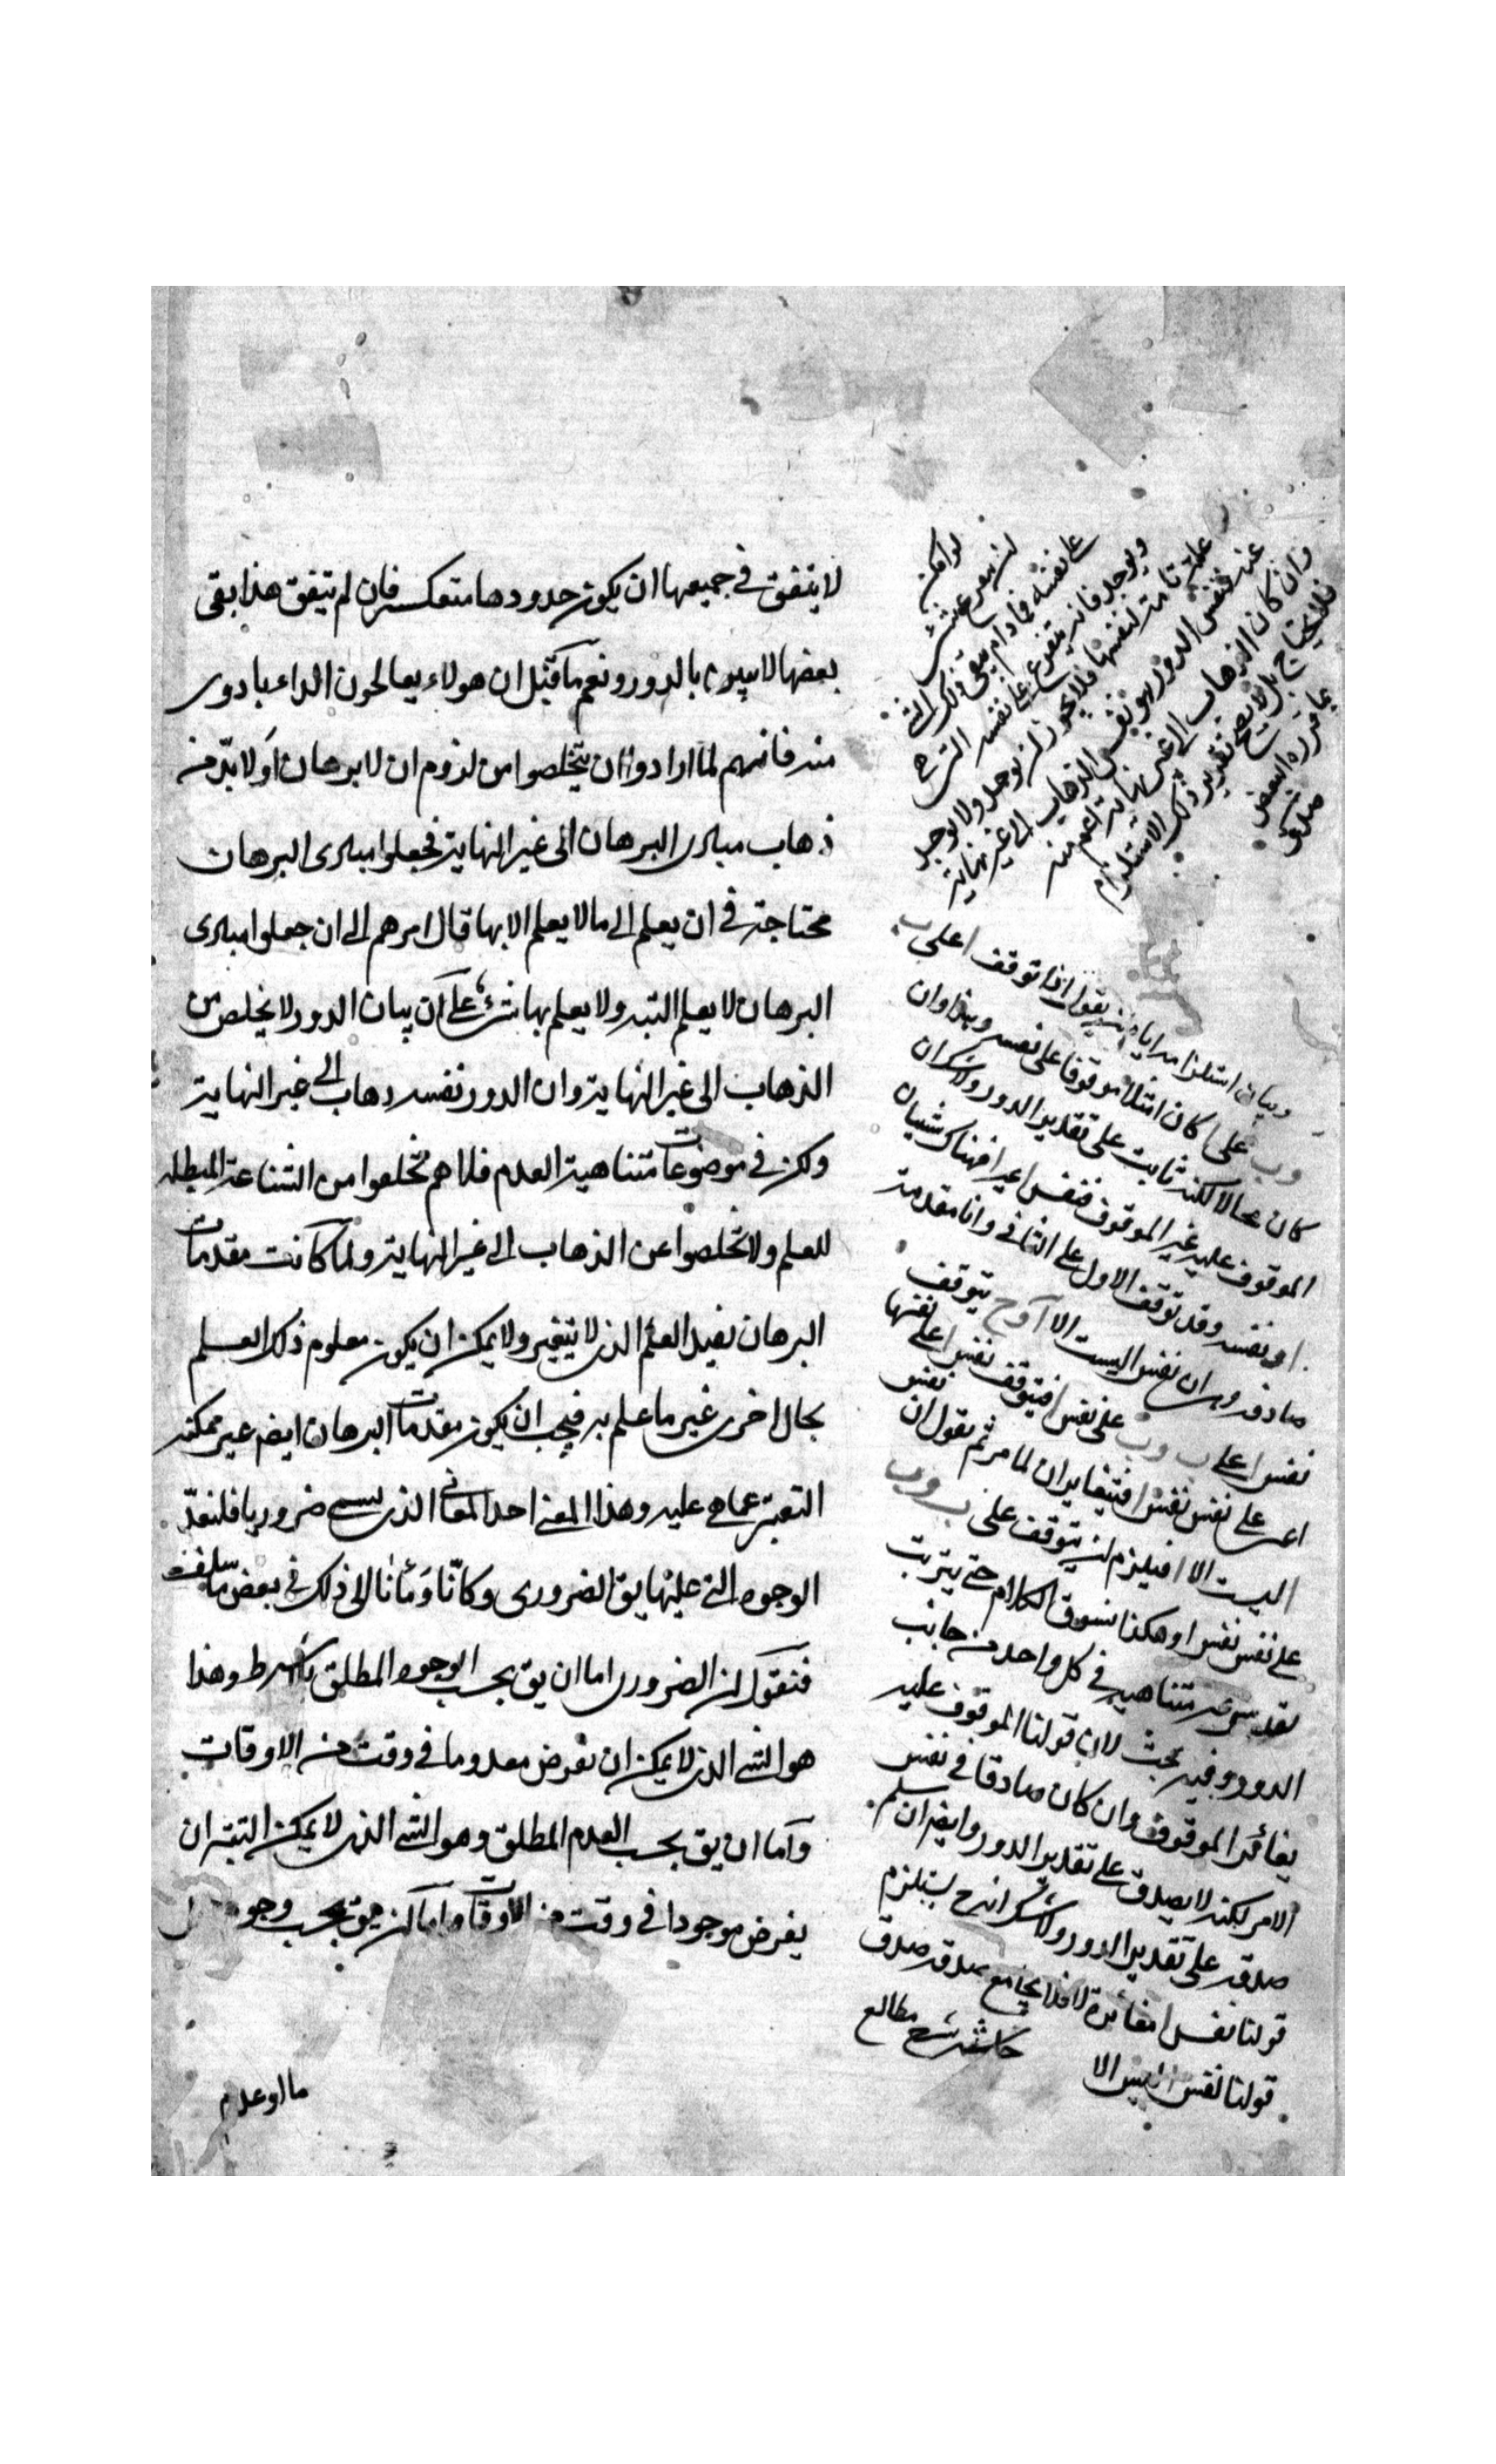 لا يتفق في جميعها ان يكون حدودها متعكسة فان لم يتفق هذا بقي
بعضها لا يبين بالدور ونعم ما قيل ان هولاء يعالحون الداء بادوى
منه فانهم لما ارادوا ان يتخلصوا من لزوم ان لا برهان او لا بدّ من
ذهاب مبادى البرهان الى غير النهاية فجعلوا مبادى البرهان
محتاجة في ان يعلم الى ما لا يعلم الا بها قال امرهم الى ان جعلوا مبادى
البرهان لا يعلم البته ولا يعلم بها شئ على ان بيان الدور لا يخلص من
الذهاب الى غير النهاية وان الدور نفسه ذهاب الى غير النهاية
ولكن في موضوعات متناهية العدم فلاهم تخلصوا من الشناعة المبطله
للعلم ولا تخلصوا عن الذهاب الى غير النهاية ولما كانت مقدمات
البرهان تفيد العلم الذي لا يتغير ولا يمكن ان يكون معلوم ذلك العلم
بحال اخرى غير ما علم به فيجب ان يكون مقدمات البرهان ايضا غير ممكنة
التغير عما هي عليه وهذا المعنى احد المعانى الذى يسمى ضروريا فلنعدّ
الوجوه التي عليها يق الضرورى وكانّا اومأنا الى ذلك في بعض ما سلف
فنقول ان الضرورى اما ان يق بحسب الوجود المطلق بلا شرط وهذا
هو الشئ الذى لا يمكن ان نفرض معدوما في وقت من الاوقات
وأما ان يق بحسب العدم المطلق وهو الشئ الذى لا يمكن البتة ان
يفرض موجودا في وقت من الاوقات واما ان يق بحسب وجود
ما او عدم
لو امكن
على نفسه فما دام يبقى ذلك الشئ
ويوجد فانه يتفرع على نفسه
علة تامة لنفسها فلا يجوز ان يوجد ولا يوجد
فنفس الدور هو نفس الذهاب الى غير نهاية
وان كان الذهاب الى غير نهاية اعم منه
فلا يحتاج بل لا يصح تقدير ذلك الاستلزام
بما قرره البعض
وبيان استلزامه اياه ان يقول اذا توقف ا على ب
وب على ا كان ا مثلا موقوفا على نفسه وهذا وان
كان محالا لكنه ثابت على تقدير الدور ولا شك ان
الموقوف عليه غير الموقوف فنفس ا غير ا فهناك شيئان
ا ونفسه وقد توقف الاول على الثانى ولنا مقدمة
صادقة وهى ان نفس ا ليست الا ا وح يتوقف
نفس ا على ب وب على نفس ا فيتوقف نفس ا على نفسها
اعنى على نفس نفس ا فيتغايران لما مر ثم نقول ان نفس
ليست الا ا فيلزم ان يتوقف على ب وب
على نفس نفس ا وهكذا نسوق الكلام حتى يترتب
نفوس غير متناهية في كل واحد من جانب
الدور وفيه بحث لان قولنا الموقوف عليه
يغاير الموقوف وان كان صادقا في نفس
الامر لكنه لا يصدق على تقدير الدور وايضا ان سلم
صدقه على تقدير الدور ولا شك انه ح يستلزم
قولنا نفس ا مغايرة لا فلا يجامع صدقه صدق
قولنا نفس ا ليس الا
حاشية شرح مطالع